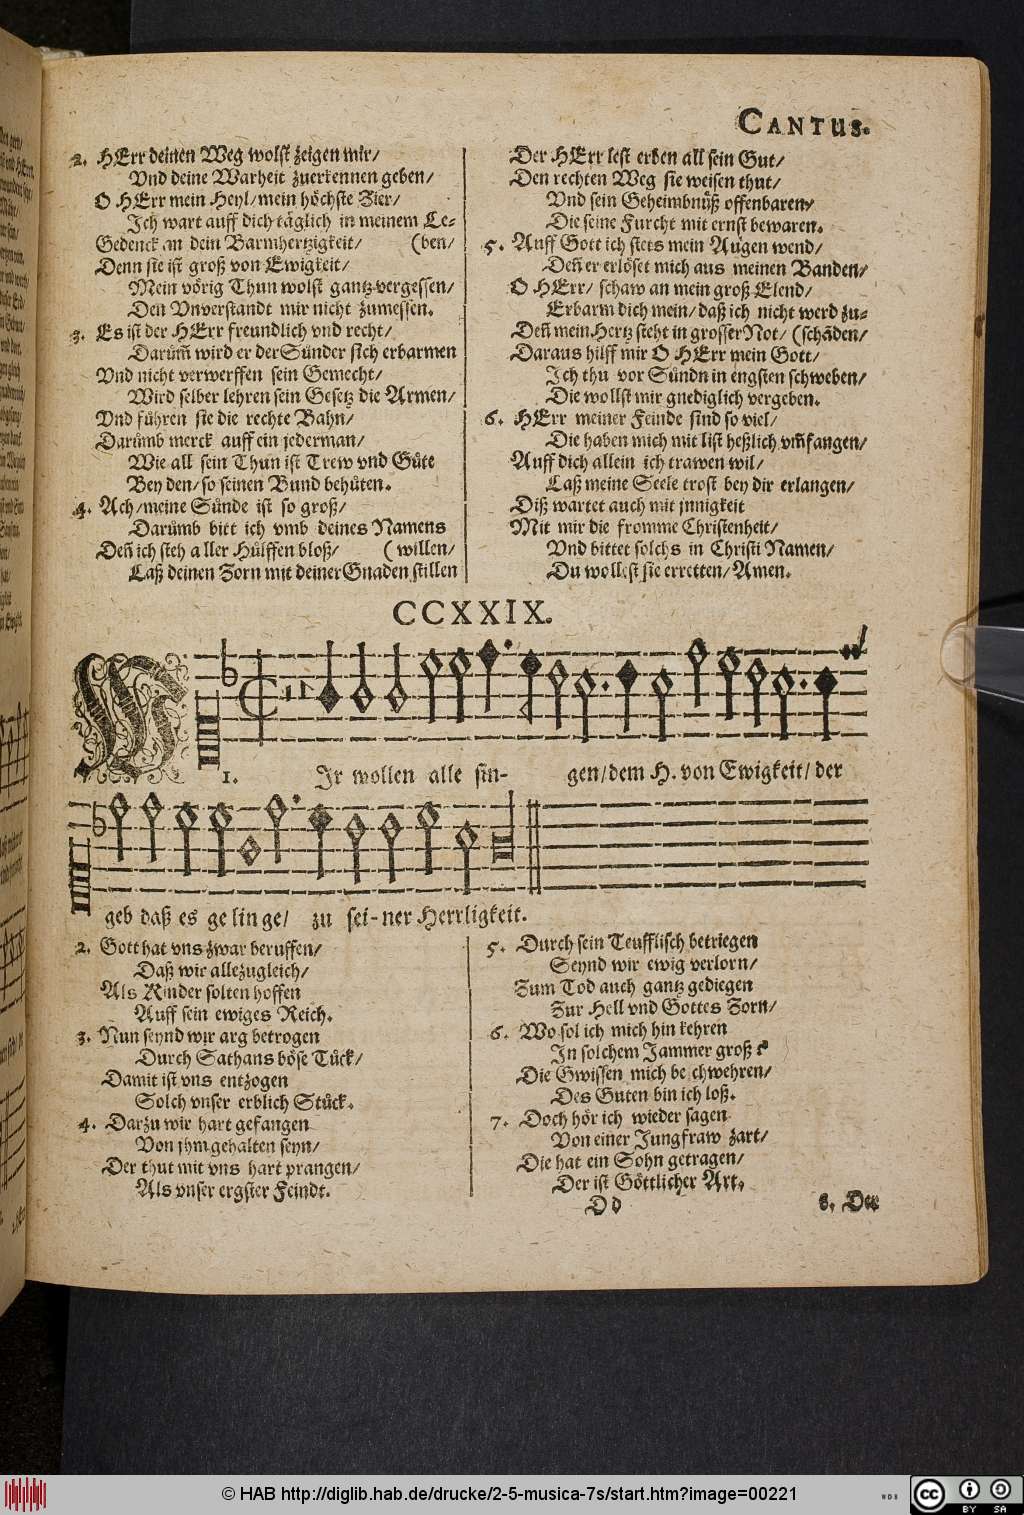 CANTUS.
2. HErr deinen Weg wolst zeigen mir/
Vnd deine Warheit zuerkennen geben/
O HErr mein Heyl/ mein höchste Zier/
Ich wart auff dich täglich in meinem Le-
Gedenck an dein Barmhertzigkeit/ (ben/
Denn sie ist groß von Ewigkeit/
Mein vörig Thun wolst gantz vergessen/
Den Vnverstandt mir nicht zumessen.
3. Es ist der HErr freundlich vnd recht/
Darüm̃ wird er der Sünder sich erbarmen
Vnd nicht verwerffen sein Gemecht/
Wird selber lehren sein Gesetz die Armen/
Vnd führen sie die rechte Bahn/
Darümb merck auff ein jederman/
Wie all sein Thun ist Trew vnd Güte
Bey den/ so seinen Bund behüten.
4. Ach/ meine Sünde ist so groß/
Darümb bitt ich vmb deines Namens
Deñ ich steh aller Hülffen bloß/ (willen/
Laß deinen Zorn mit deiner Gnaden stillen
Der HErr lest erben all sein Gut/
Den rechten Weg sie weisen thut/
Vnd sein Geheimbnüß offenbaren/
Die seine Furcht mit ernst bewaren.
5. Auff Gott ich stets mein Augen wend/
Deñ er erlöset mich aus meinen Banden/
O HErr/ schaw an mein groß Elend/
Erbarm dich mein/ daß ich nicht werd zu-
Deñ mein Hertz steht in grosser Not/ (schäden/
Daraus hilff mir O HErr mein Gott/
Ich thu vor Sündn in engsten schweben/
Die wollst mir gnediglich vergeben.
6. HErr meiner Feinde sind so viel/
Die haben mich mit list heßlich vm̃fangen/
Auff dich allein ich trawen wil/
Laß meine Seele trost bey dir erlangen/
Diß wartet auch mit jnnigkeit
Mit mir die fromme Christenheit/
Vnd bittet solchs in Christi Namen/
Du wollest sie erretten/ Amen.
CCXXIX.
1. WIr wollen alle sin- gen/ dem H. von Ewigkeit/ der
geb daß es gelinge/ zu sei-ner Herrligkeit.
2. Gott hat vns zwar beruffen/
Daß wir allezugleich/
Als Kinder solten hoffen
Auff sein ewiges Reich.
3. Nun seynd wir arg betrogen
Durch Sathans böse Tück/
Damit ist vns entzogen
Solch vnser erblich Stück.
4. Darzu wir hart gefangen
Von jhm gehalten seyn/
Der thut mit vns hart prangen/
Als vnser ergster Feindt.
5. Durch sein Teufflisch betriegen
Seynd wir ewig verlorn/
Zum Tod auch gantz gediegen
Zur Hell vnd Gottes Zorn/
6. Wo sol ich mich hin kehren
In solchem Jammer groß?
Die Gwissen mich be chwehren/
Des Guten bin ich loß.
7. Doch hör ich wieder sagen
Von einer Jungfraw zart/
Die hat ein Sohn getragen/
Der ist Göttlicher Art.
Dd 8. Der
© HAB http://diglib.hab.de/drucke/2-5-musica-7s/start.htm?image=00221
WDB
cc BY SA